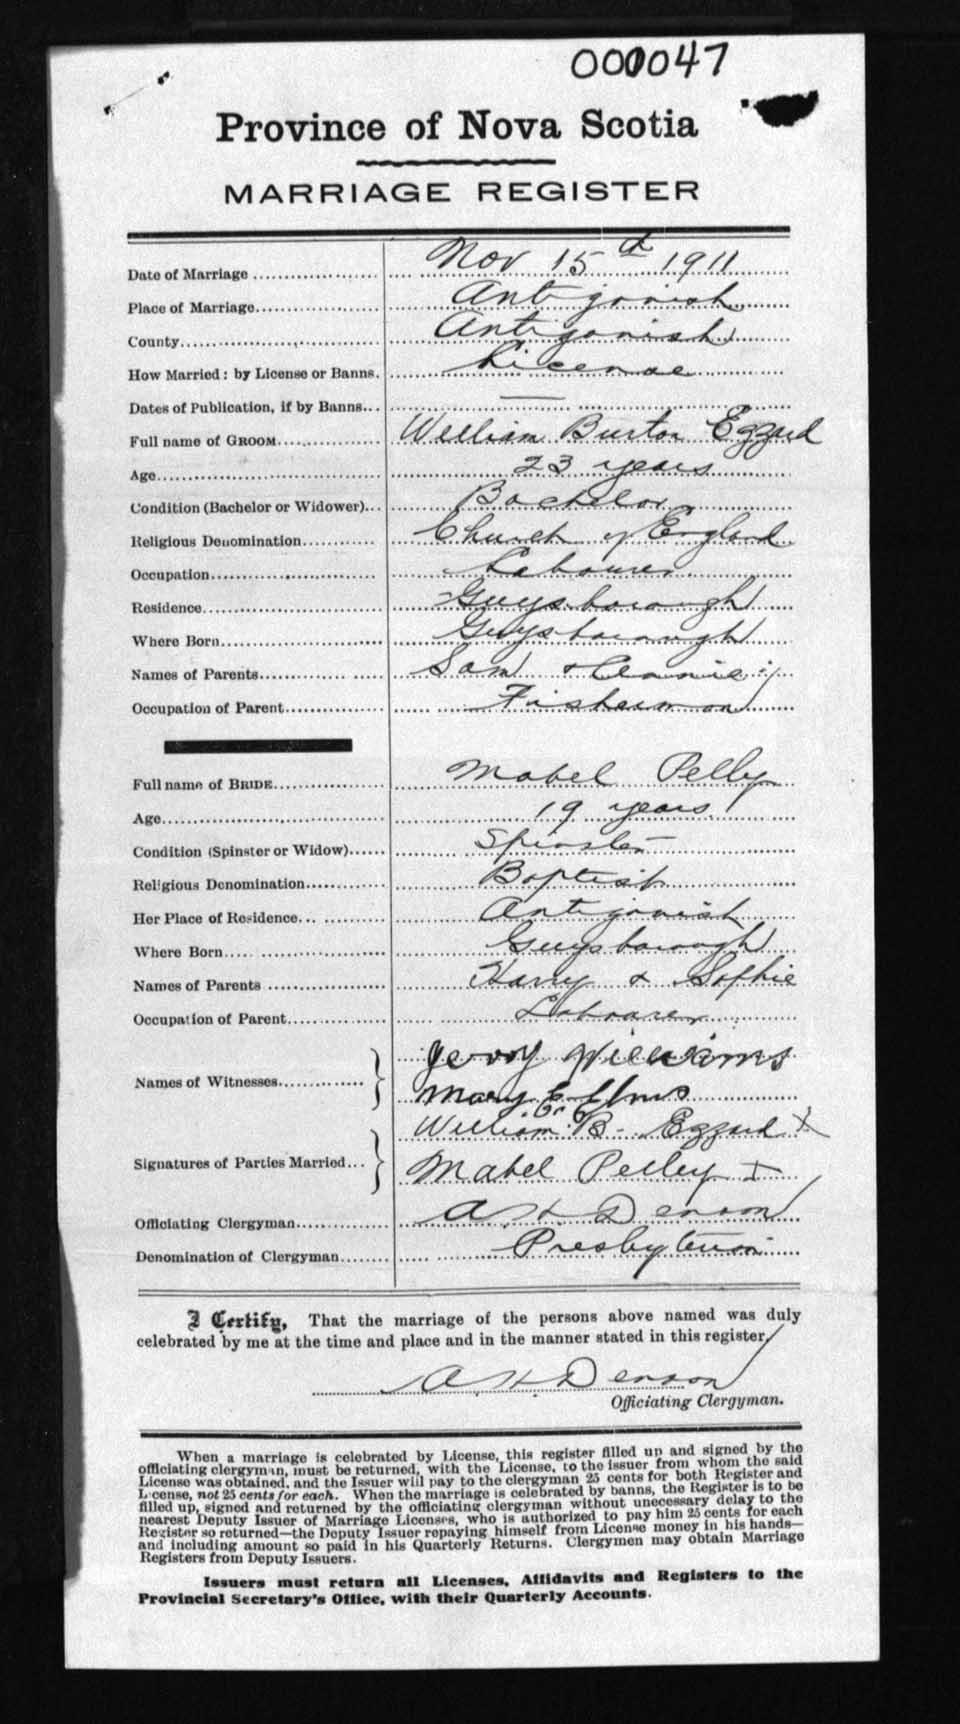 000047
Province of Nova Scotia
MARRIAGE REGISTER
Date of Marriage Nov 15th 1911
Place of Marriage Antigonish
County Antigonish
How Married: by License or Banns. License
Dates of Publication, if by Banns —
Full name of GROOM William Burton Ezzard
Age 23 years
Condition (Bachelor or Widower) Bachelor
Religious Denomination Church of England
Occupation Labourer
Residence Guysborough
Where Born Guysborough
Names of Parents Sam &
Occupation of Parent Fisherman
Full name of BRIDE Mabel Pelly
Age 19 years
Condition (Spinster or Widow) Spinster
Religious Denomination Baptist
Her Place of Residence Antigonish
Where Born Guysborough
Names of Parents Harry & Sophie
Occupation of Parent Labourer
Jerry Williams
Names of Witnesses
Mary E Elms
William B. Ezzard X
Signatures of Parties Married
Mabel Pelley X
Officiating Clergyman A H Denoon
Denomination of Clergyman Presbyterian
I Certify, That the marriage of the persons above named was duly
celebrated by me at the time and place and in the manner stated in this register.
A H Denoon
Officiating Clergyman.
When a marriage is celebrated by License, this register filled up and signed by the
officiating clergyman, must be returned, with the License, to the issuer from whom the said
License was obtained, and the Issuer will pay to the clergyman 25 cents for both Register and
License, not 25 cents for each. When the marriage is celebrated by banns, the Register is to be
filled up, signed and returned by the officiating clergyman without unnecessary delay to the
nearest Deputy Issuer of Marriage Licenses, who is authorized to pay him 25 cents for each
Register so returned—the Deputy Issuer repaying himself from License money in his hands—
and including amount so paid in his Quarterly Returns. Clergymen may obtain Marriage
Registers from Deputy Issuers.
Issuers must return all Licenses, Affidavits and Registers to the
Provincial Secretary's Office, with their Quarterly Accounts.